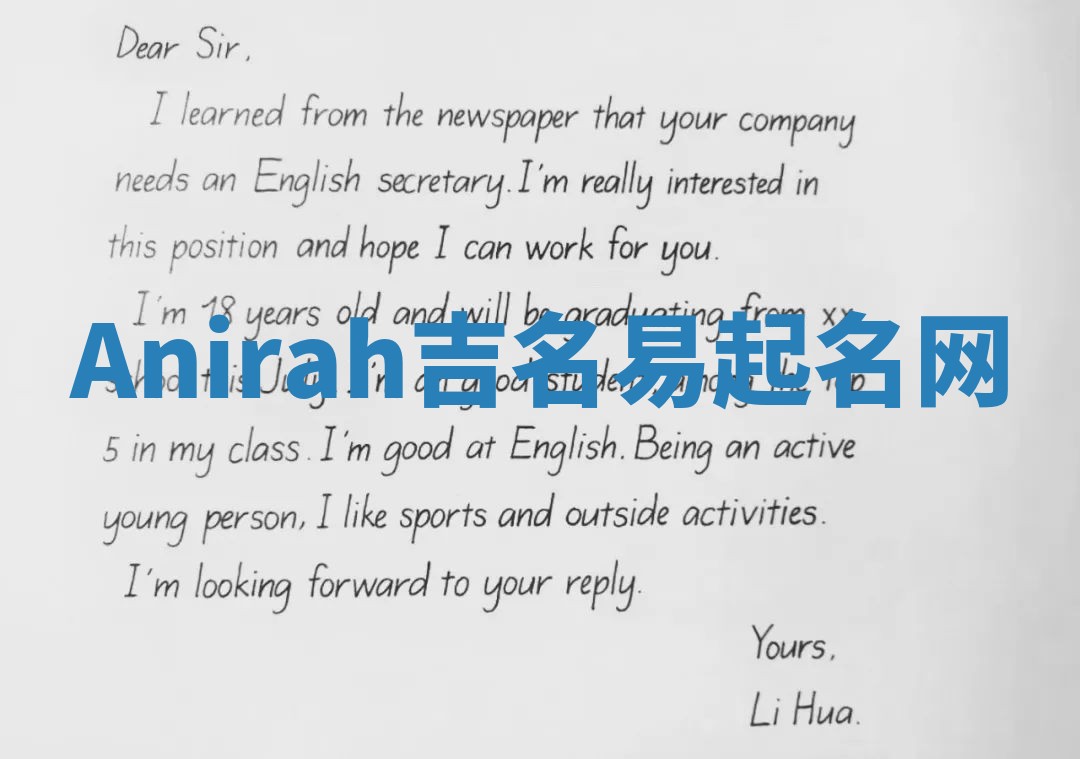 Dear Sir,
I learned from the newspaper that your company
needs an English secretary. I'm really interested in
this position and hope I can work for you.
I'm 18 years old and will be graduating from xx
Anirah吉名易起名网
school this July. I'm a good student, among the top
5 in my class. I'm good at English. Being an active
young person, I like sports and outside activities.
I'm looking forward to your reply.
Yours,
Li Hua.